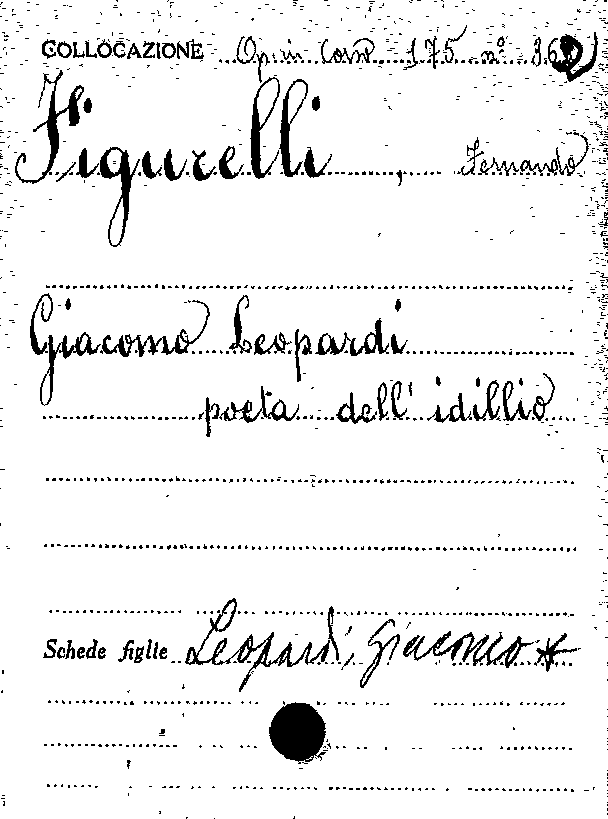 COLLOCAZIONE Op. in Cons 175 n° 36
Figurelli, Fernando
Giacomo Leopardi
poeta dell' idillio
Schede figlie Leopardi, Giacomo *